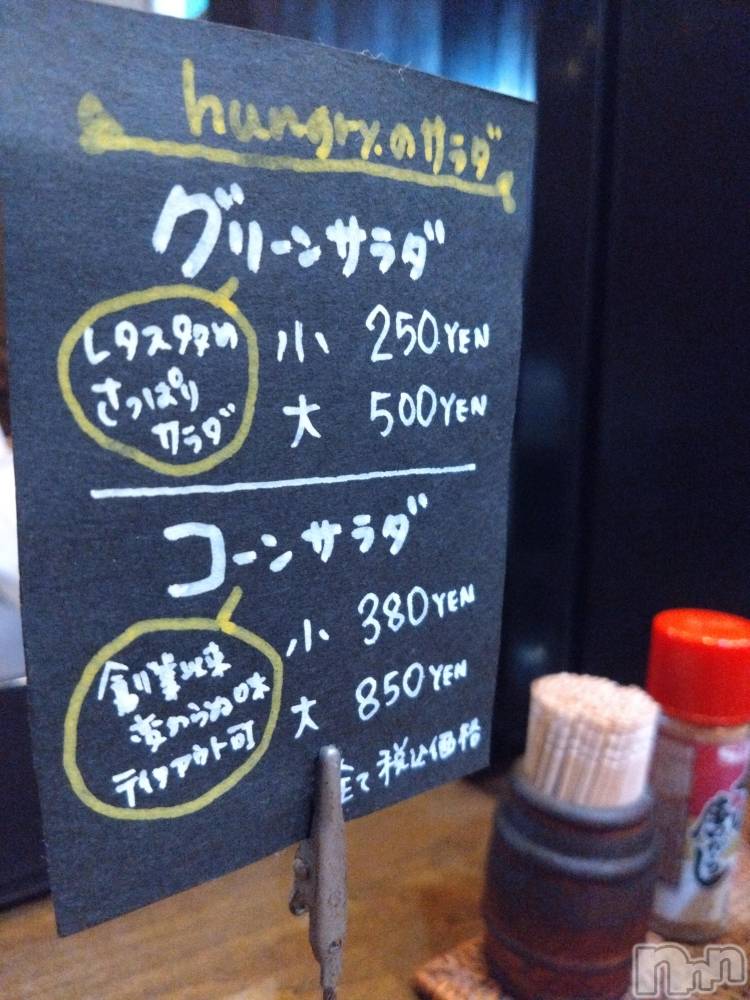 hungry.のサラダ
グリーンサラダ
レタスタタめ
さっぱり
サラダ
小 250YEN
大 500YEN
コーンサラダ
創業以来
変わらぬ味
テイクアウト可
小 380YEN
大 850YEN
全て税込価格
nnn